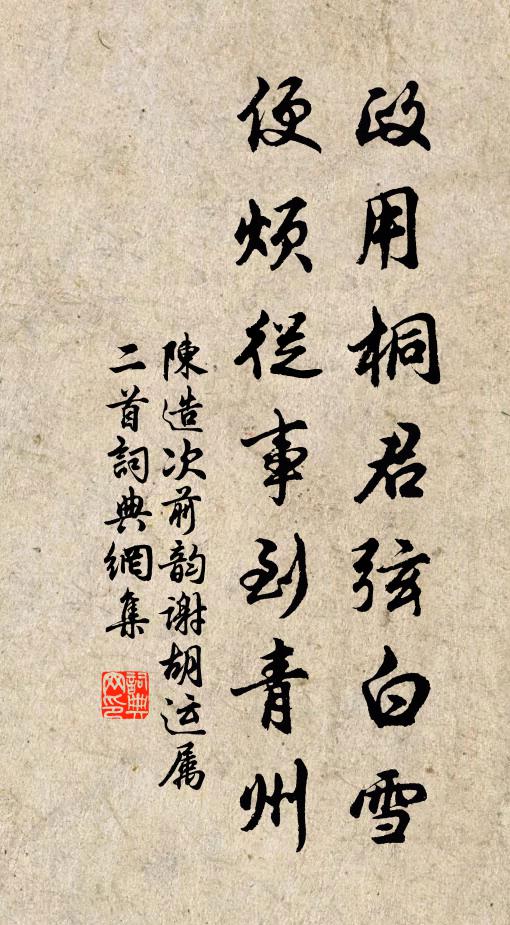 政用桐君弦白雪
便烦從事到青州
陳造次前韵谢胡运属
二首詞典網集
詞典網印